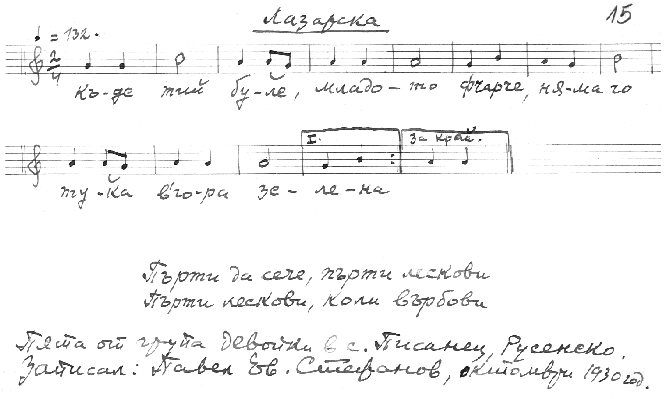 Лазарска
15
♩ = 132.
2/4
Къ-де тий бу-ле, младо-то фчарче, ня-ма го
I. За край.
ту-ка в'го-ра зе-ле-на
Пърти да сече, пърти лескови
Пърти лескови, коли върбови
Пята от група девойки в с. Писанец, Русенско.
Записал: Павел Ев. Стефанов, октомври 1930 год.